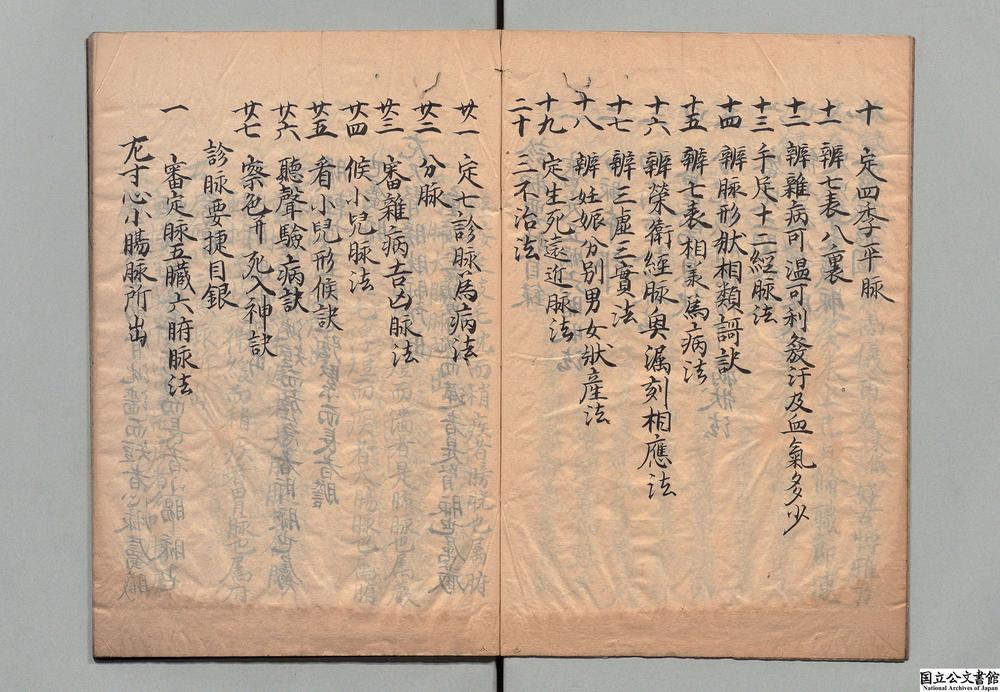 十 定四季平脉
十一 辨七表八裏
十二 辨雜病可温可利發汗及血氣多少
十三 手足十二經脉法
十四 辨脉形狀相類謌訣
十五 辨七表相承爲病法
十六 辨榮衛經脉與漏刻相應法
十七 辨三虚三實法
十八 辨妊娠分別男女狀産法
十九 定生死遠近脉法
二十 三不治法
廿一 定七診脉爲病法
廿二 分脉
廿三 審雜病吉凶脉法
廿四 候小兒脉法
廿五 看小兒形候訣
廿六 聽聲驗病訣
廿七 察色并死入神訣
診脉要捷目銀
一 審定脉五臟六腑脉法
左寸心小腸脉所出
国立公文書館
National Archives of Japan